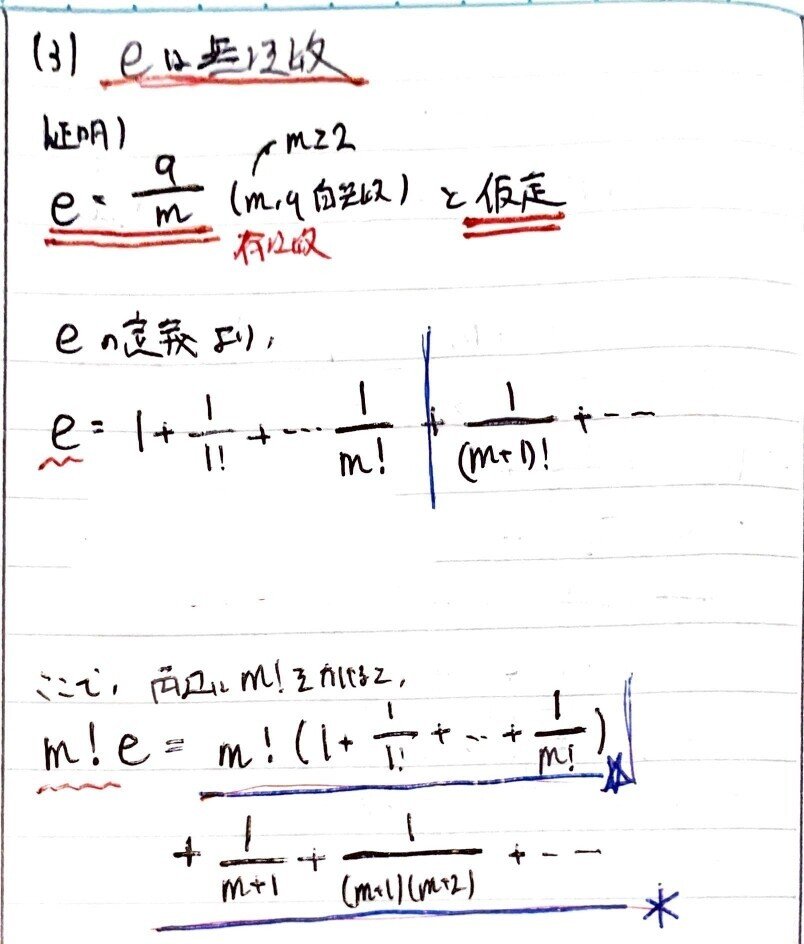 (3) eは無理数
証明)
m≧2
e = q/m (m,q 自然数) と仮定
有理数
eの定義より,
e = 1 + 1/1! + … 1/m! + 1/(m+1)! + ‥
ここで, 両辺に m! をかけると,
m! e = m! (1 + 1/1! + ‥ + 1/m!)
+ 1/(m+1) + 1/((m+1)(m+2)) + ‥ *